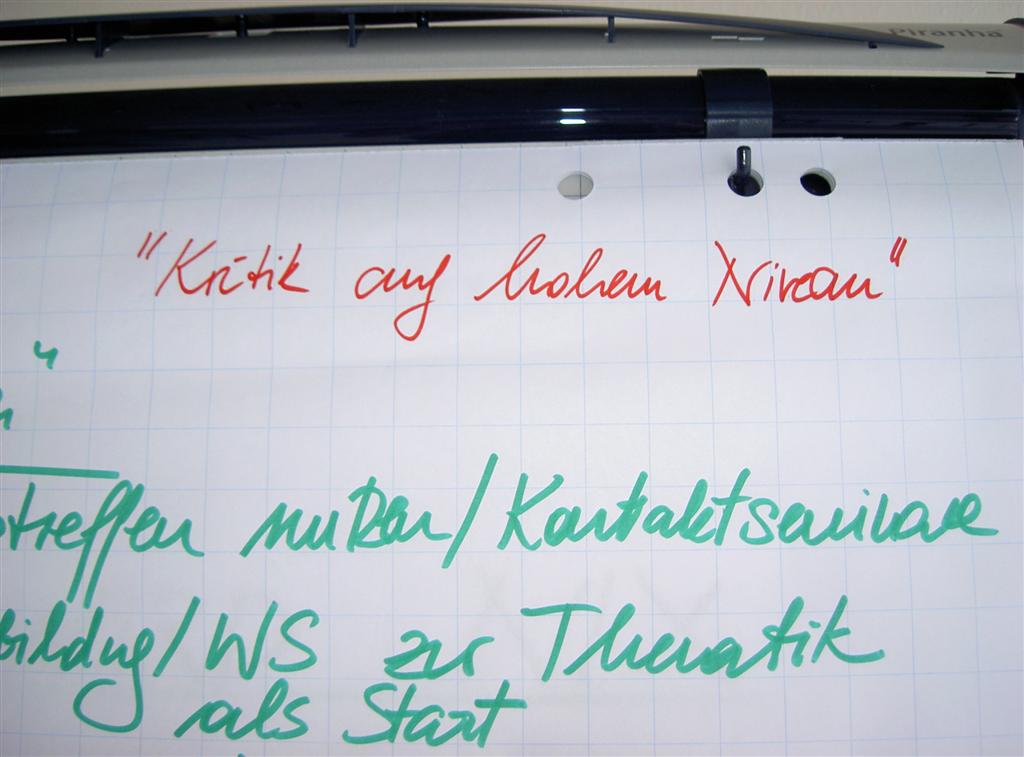 Piranha
"Kritik auf hohem Niveau"
treffen nutzen/Kontaktseminare
bildung/WS zur Thematik
als Start